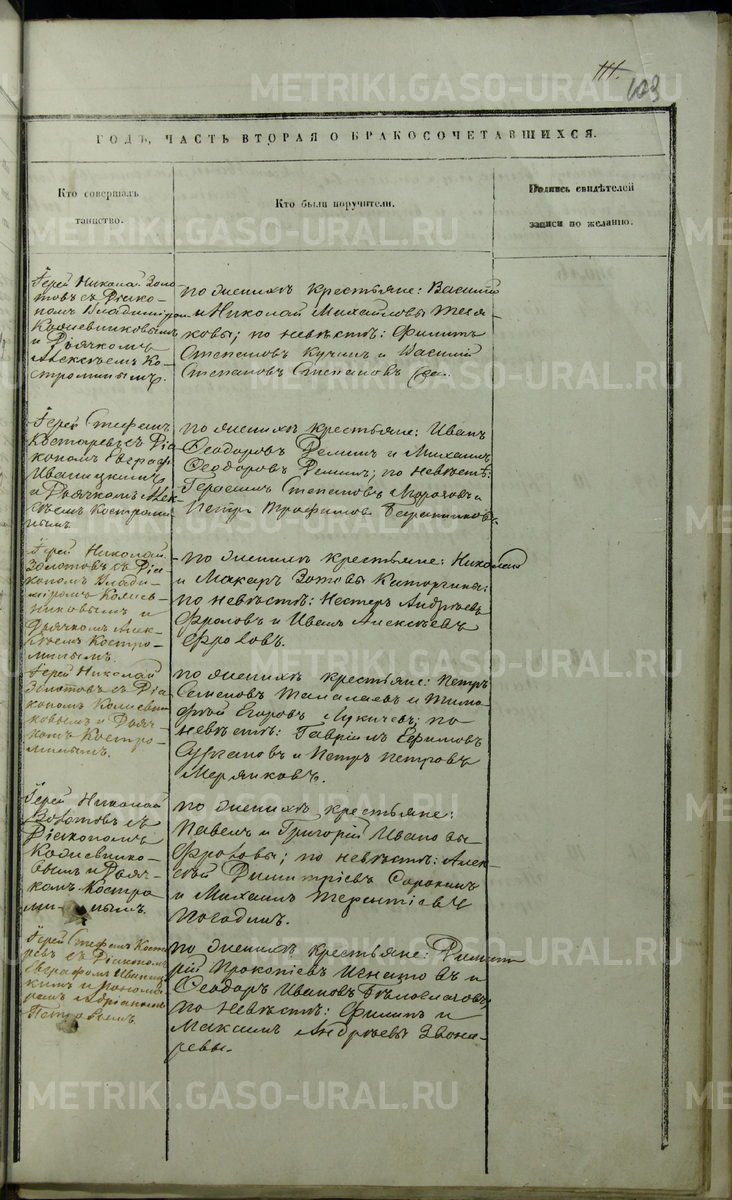 111.
103
ГОДЪ, ЧАСТЬ ВТОРАЯ О БРАКОСОЧЕТАВШИХСЯ.
Кто совершалъ
таинство.
Кто были поручители.
Подпись свидѣтелей
записи по желанію.
Іерей Николай Золо
товъ съ Діако-
номъ Владиміром
Кожевниковымъ
и Дьячкомъ
Алексѣемъ Ко-
строминымъ.
по женихѣ крестьяне: Василій
и Николай Михайловы
ковы; по невѣстѣ: Филипъ
Степановъ Кучинъ и Василій
Степановъ Степановъ
Іерей Стефанъ
Костаревъ съ Діа
кономъ Евграф
Иваницкимъ
и Дьячкомъ Алек
ѣемъ Костроми
нымъ
по женихѣ крестьяне: Иванъ
Ѳеодоровъ Деминъ и Михаилъ
Ѳеодоровъ Деминъ; по невѣстѣ:
Герасимъ Степановъ Морозовъ и
Петръ Трофимов
Іерей Николай
Золотовъ съ Діа
кономъ Влади-
міромъ Кожев-
никовымъ и
Дьячкомъ Алек-
ѣемъ Костро-
минымъ.
по женихѣ крестьяне: Николай
и Макаръ Зотовы Каторгины;
по невѣстѣ: Нестеръ Андреевъ
Фроловъ и Иванъ Алексѣевъ
Фроловъ.
Іерей Николай
Золотовъ съ Діа
кономъ Кожевни
ковымъ и Дьяч-
комъ Костро-
минымъ.
по женихѣ крестьяне: Петръ
Семеновъ Талалаевъ и Тимо-
фей Егоровъ Лукичевъ; по
невѣстѣ: Гавріилъ Ефимовъ
Сургановъ и Петръ Петровъ
Меряковъ.
Іерей Николай
Золотовъ съ
Діакономъ
Кожевнико-
вымъ и Дьяч-
комъ Костро
ми-нымъ.
по женихѣ крестьяне:
Павелъ и Григорій Ивановы
Фроловы; по невѣстѣ: Алек-
сѣй Димитріевъ Сорокинъ
и Михаилъ Терентіевъ
Погадинъ.
Іерей Стефанъ Коста
ревъ съ Діакономъ
Евграфомъ Иваниц
кимъ и понома
ремъ Адріаномъ
Петровымъ
по женихѣ крестьяне: Димит
рій Прокопіевъ Игнатовъ и
Ѳеодоръ Ивановъ Бѣлоглазовъ;
по невѣстѣ: Филипъ и
Максимъ Андреевы Звона-
ревы.
METRIKI.GASO-URAL.RU
METRIKI.GASO-URAL.RU
METRIKI.GASO-URAL.RU
METRIKI.GASO-URAL.RU
METRIKI.GASO-URAL.RU
METRIKI.GASO-URAL.RU
METRIKI.GASO-URAL.RU
METRIKI.GASO-URAL.RU